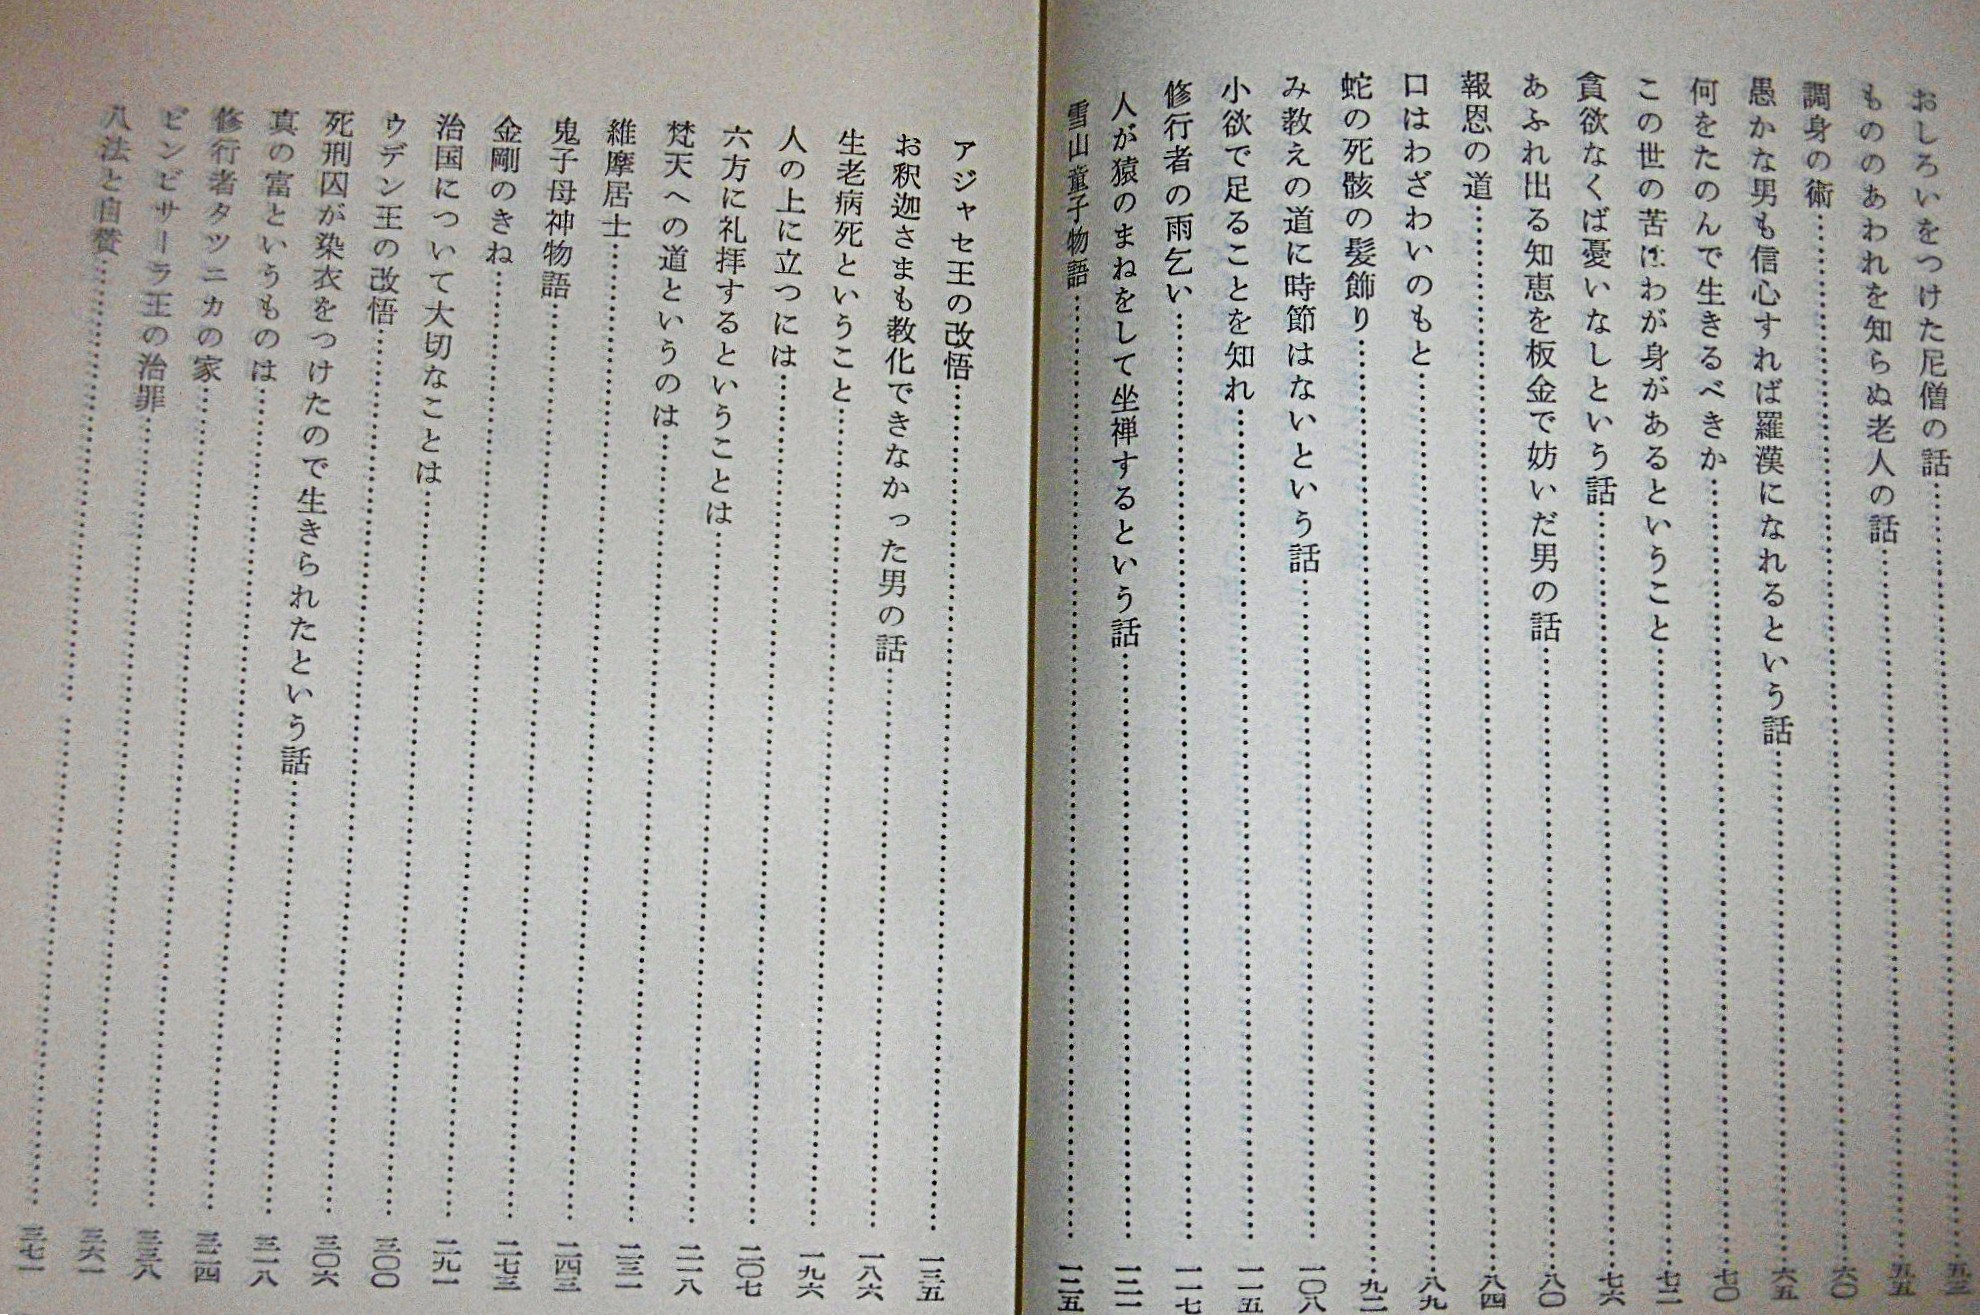 おしろいをつけた尼僧の話……五三
もののあわれを知らぬ老人の話……五五
調身の術……六〇
愚かな男も信心すれば羅漢になれるという話……六五
何をたのんで生きるべきか……七〇
この世の苦はわが身があるということ……七二
貪欲なくば憂いなしという話……七六
あふれ出る知恵を板金で妨いだ男の話……八〇
報恩の道……八四
口はわざわいのもと……八九
蛇の死骸の髪飾り……九二
み教えの道に時節はないという話……一〇八
小欲で足ることを知れ……一一五
修行者の雨乞い……一一七
人が猿のまねをして坐禅するという話……一二一
雪山童子物語……一二五
アジャセ王の改悟……一三五
お釈迦さまも教化できなかった男の話……一八六
生老病死ということ……一九六
人の上に立つには……二〇七
六方に礼拝するということは……二一八
梵天への道というのは……二三一
維摩居士……二四三
鬼子母神物語……二七三
金剛のきね……二九一
治国について大切なことは……三〇〇
ウデン王の改悟……三〇六
死刑囚が染衣をつけたので生きられたという話……三一八
真の富というものは……三二四
修行者タツニカの家……三三八
ビンビサーラ王の治罪……三六一
八法と自賛……三七一